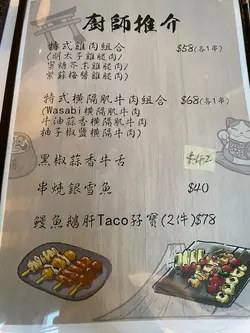 廚師推介
特式雞肉組合 $58(各1串)
(明太子雞腿肉/
蜜糖芥末雞腿肉/
紫蘇梅醬雞腿肉)
特式橫隔肌牛肉組合 $68(各1串)
(Wasabi橫隔肌牛肉/
牛油蒜香橫隔肌牛肉/
柚子椒鹽橫隔肌牛肉)
黑椒蒜香牛舌 $42
串燒銀雪魚 $40
鰻魚鵝肝Taco孖寶(2件)$78